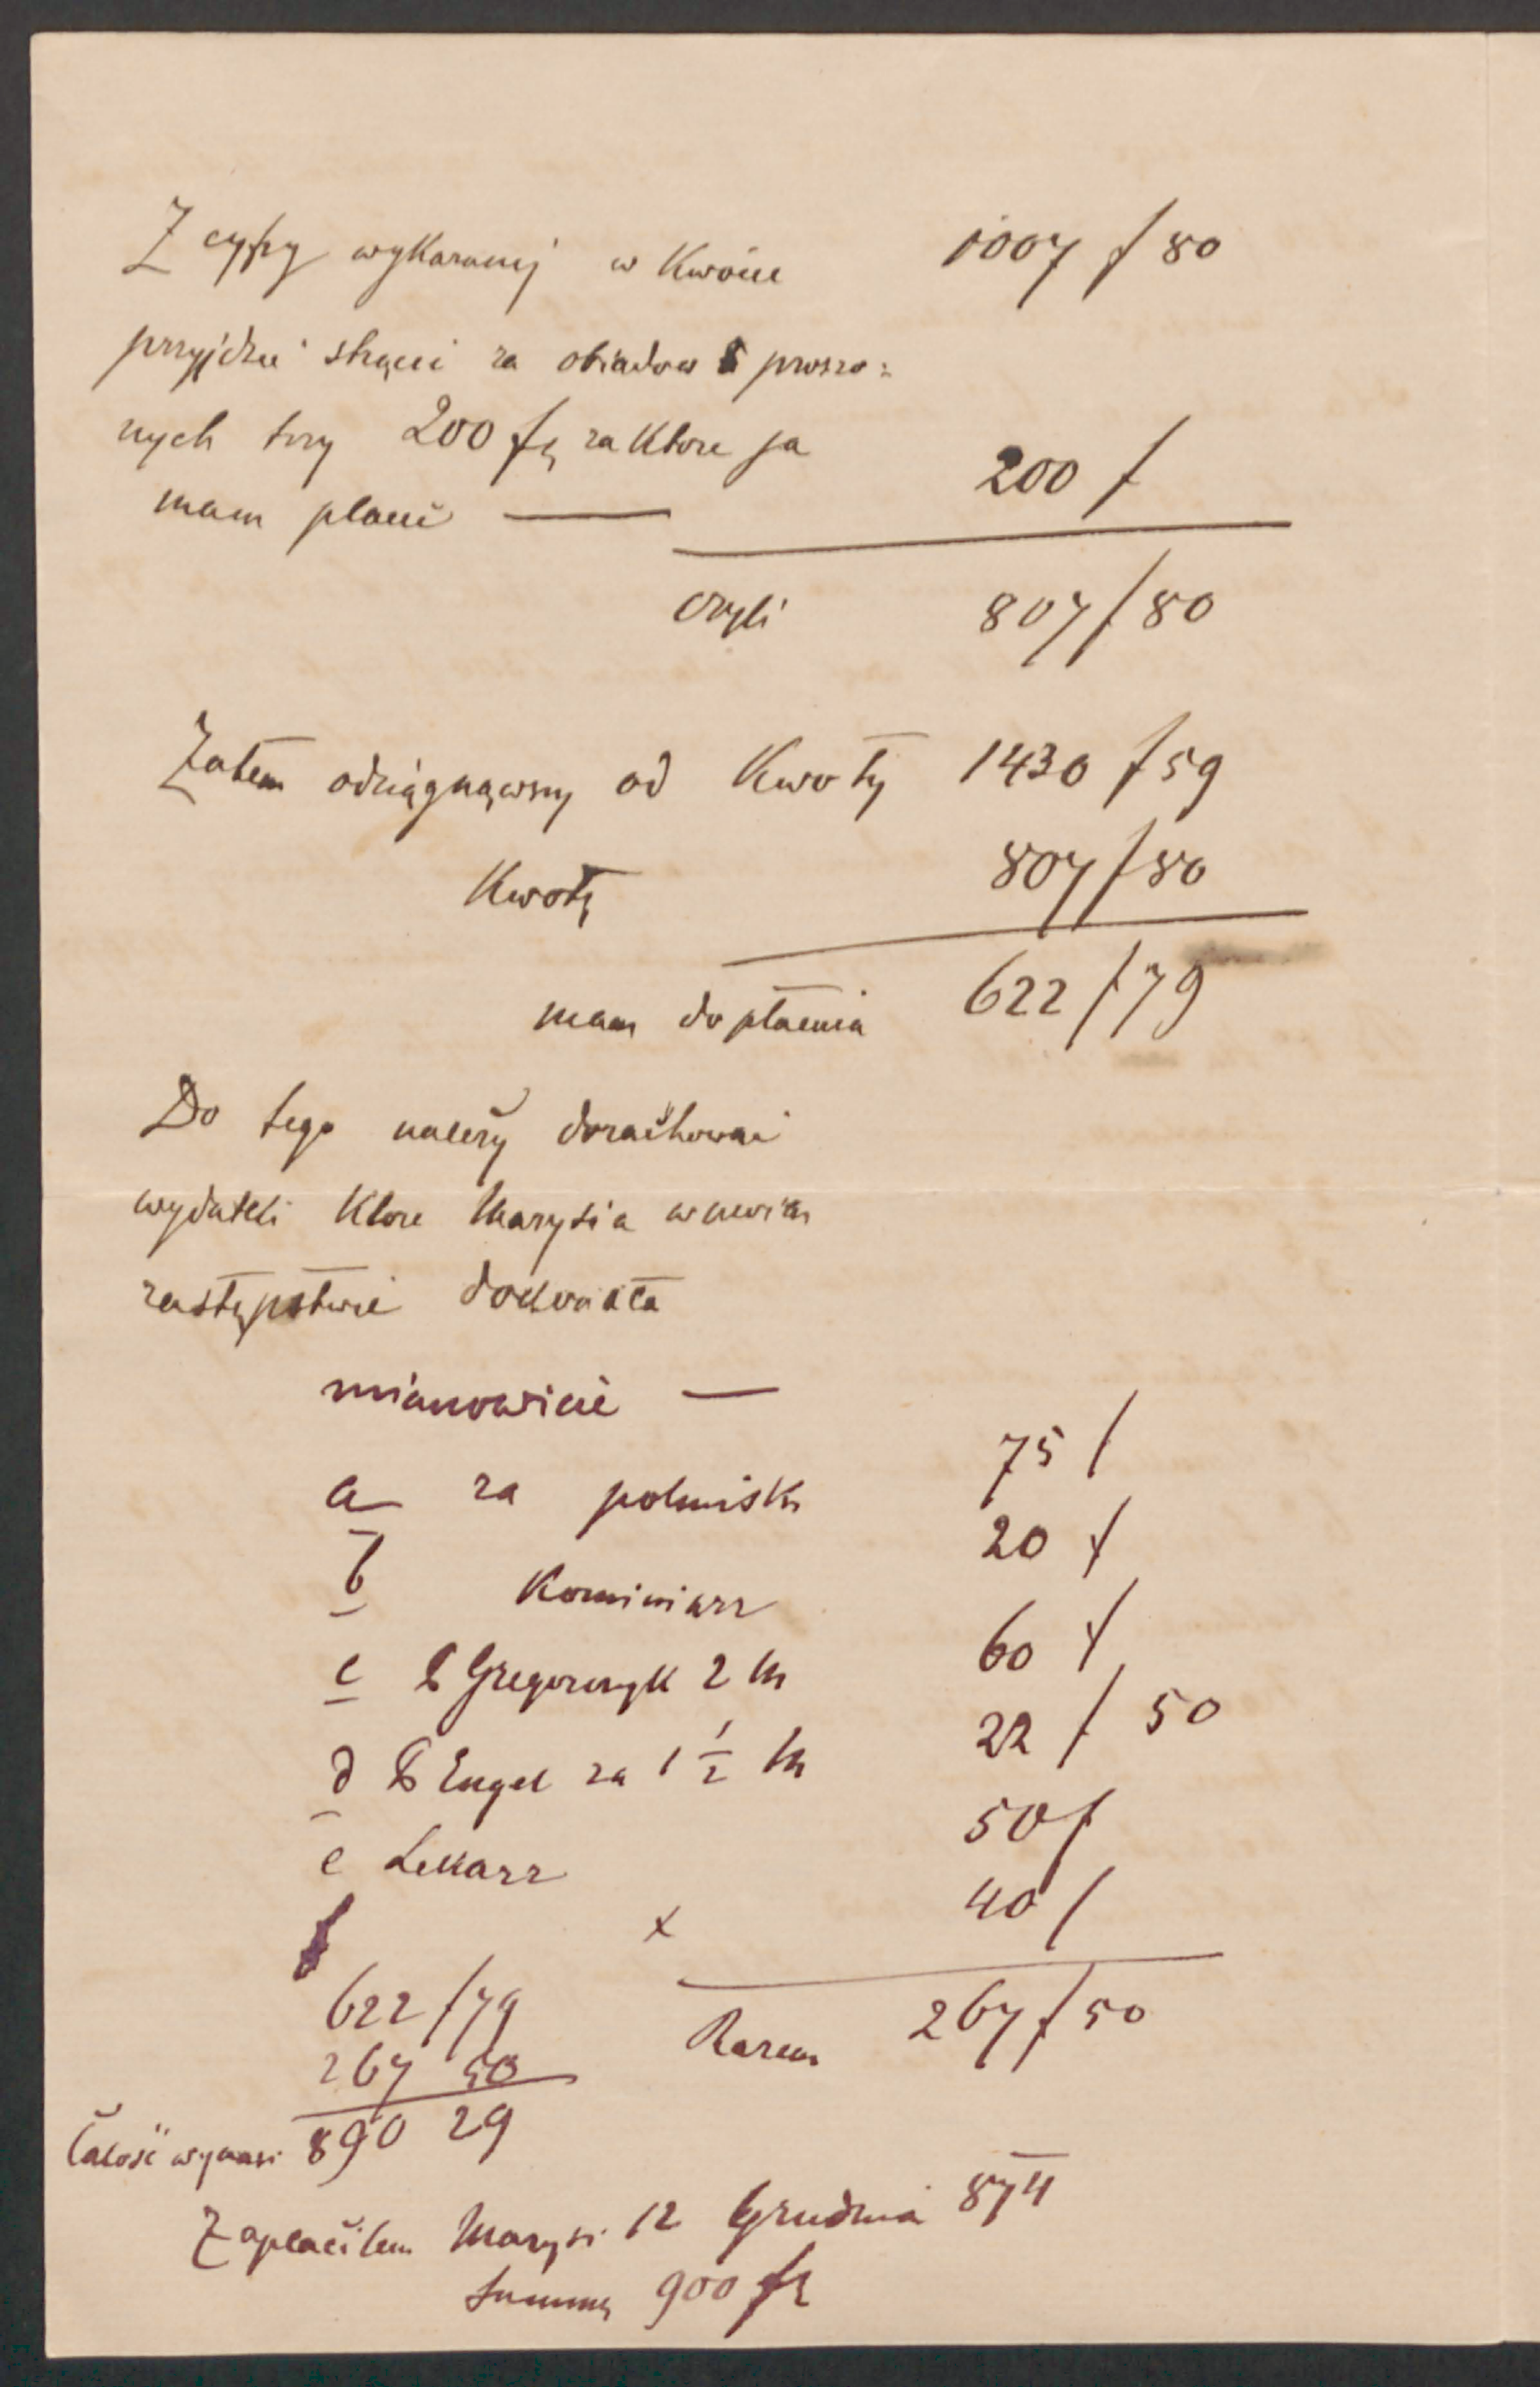 Z cyfry wykazanej w kwocie 1007 f 80
przyjdzie strącić za obiadów 6 proszo=
nych trzy 200 fr za które ja
mam płacić — 200 f
czyli 807 f 80
Zatem odciągnąwszy od Kwoty 1430 f 59
Kwotę 807 f 80
mam do płacenia 622 f 79
Do tego należy dorachować
wydatki które Marysia w moim
zastępstwie
mianowicie —
a za półmiski 75 f
b Kominiarz 20 f
c P Gregorczyk 2 m 60 f
d P Engel za 1 1/2 m 22 f 50
e Lekarz 50 f
x 40 f
Razem 267 f 50
622 f 79
267 50
Całość wynosi 890 29
Zapłaciłem Marysi 12 Grudnia 874
Summę 900 fr